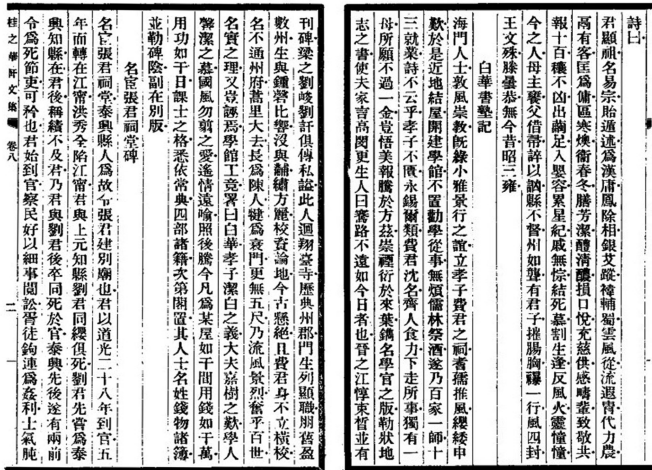 詩曰
君顯祖名易宗貽遁述爲漢庸鳳除相銀艾蹤輔蜀雲風從流遐胄代力農
鬲有客匡爲傭區寒燠衞春冬勝芳潔醴清醲損口悅充慈供感疇輩致敬共
報十百穰不凶出繭足入嬰容累星紀戚無悰結死慕割生逢反風火靈憧憧
今之人母主饔父借帚誶以訕縣不督州如聾有君子摧腸胸一行風四封
王文殊滕曇恭無今昔昭三雍
白華書塾記
海門人士敦風崇教旣緣小雅景行之誼立孝子費君之祠耆孺推風纓緌申
歎於是近地結屋開建學館不置勸學從事無煩儒林祭酒遂乃百家一師十
三就業詩不云乎孝子不匱永錫爾類費君沈名齊人食力下走所事獨有一
母所願不過一金豈悟美報騰於方茲崇禋衍於來葉鐫名學官之版勒狀地
志之書使夫家吉高閔更生人曰騫路不遠如今日者也晉之江惇束晳並有
刊碑梁之劉峻劉訏俱傳私謚此人迴翔臺寺歷典州郡門生列顯職朋舊盈
數州生與鍾磬比響沒與黼繡方麗校資論地今古懸絕且費君身不立橫校
名不通州府蒿里大去長爲陳人犍爲衰門更無五尺乃流風景烈奮乎百世
名實之理又豈誣焉學館工竟署曰白華孝子潔白之義大夫嘉樹之歎學人
馨潔之慕國風勿翦之愛遙情遠喻照後騰今凡爲某屋如干間用錢如干萬
用功如干日課士之格悉依常典四部諸籍次第閣置其人士名姓錢物諸簿
並勒碑陰副在別版
名宦張君祠堂碑
名宦張君祠堂泰興縣人爲故令張君建別廟也君以道光二十八年到官五
年而轉在江甯洪秀全陷江甯君與上元知縣劉君同纓俱死劉君先嘗爲泰
興知縣在君後稱績不及君乃君與劉君後卒同死於官泰興先後遂有兩前
令爲死節更可矜也君始到官察民好以細事鬩訟胥徒鉤連爲姦利士氣肫
桂之華軒文集 卷八 二